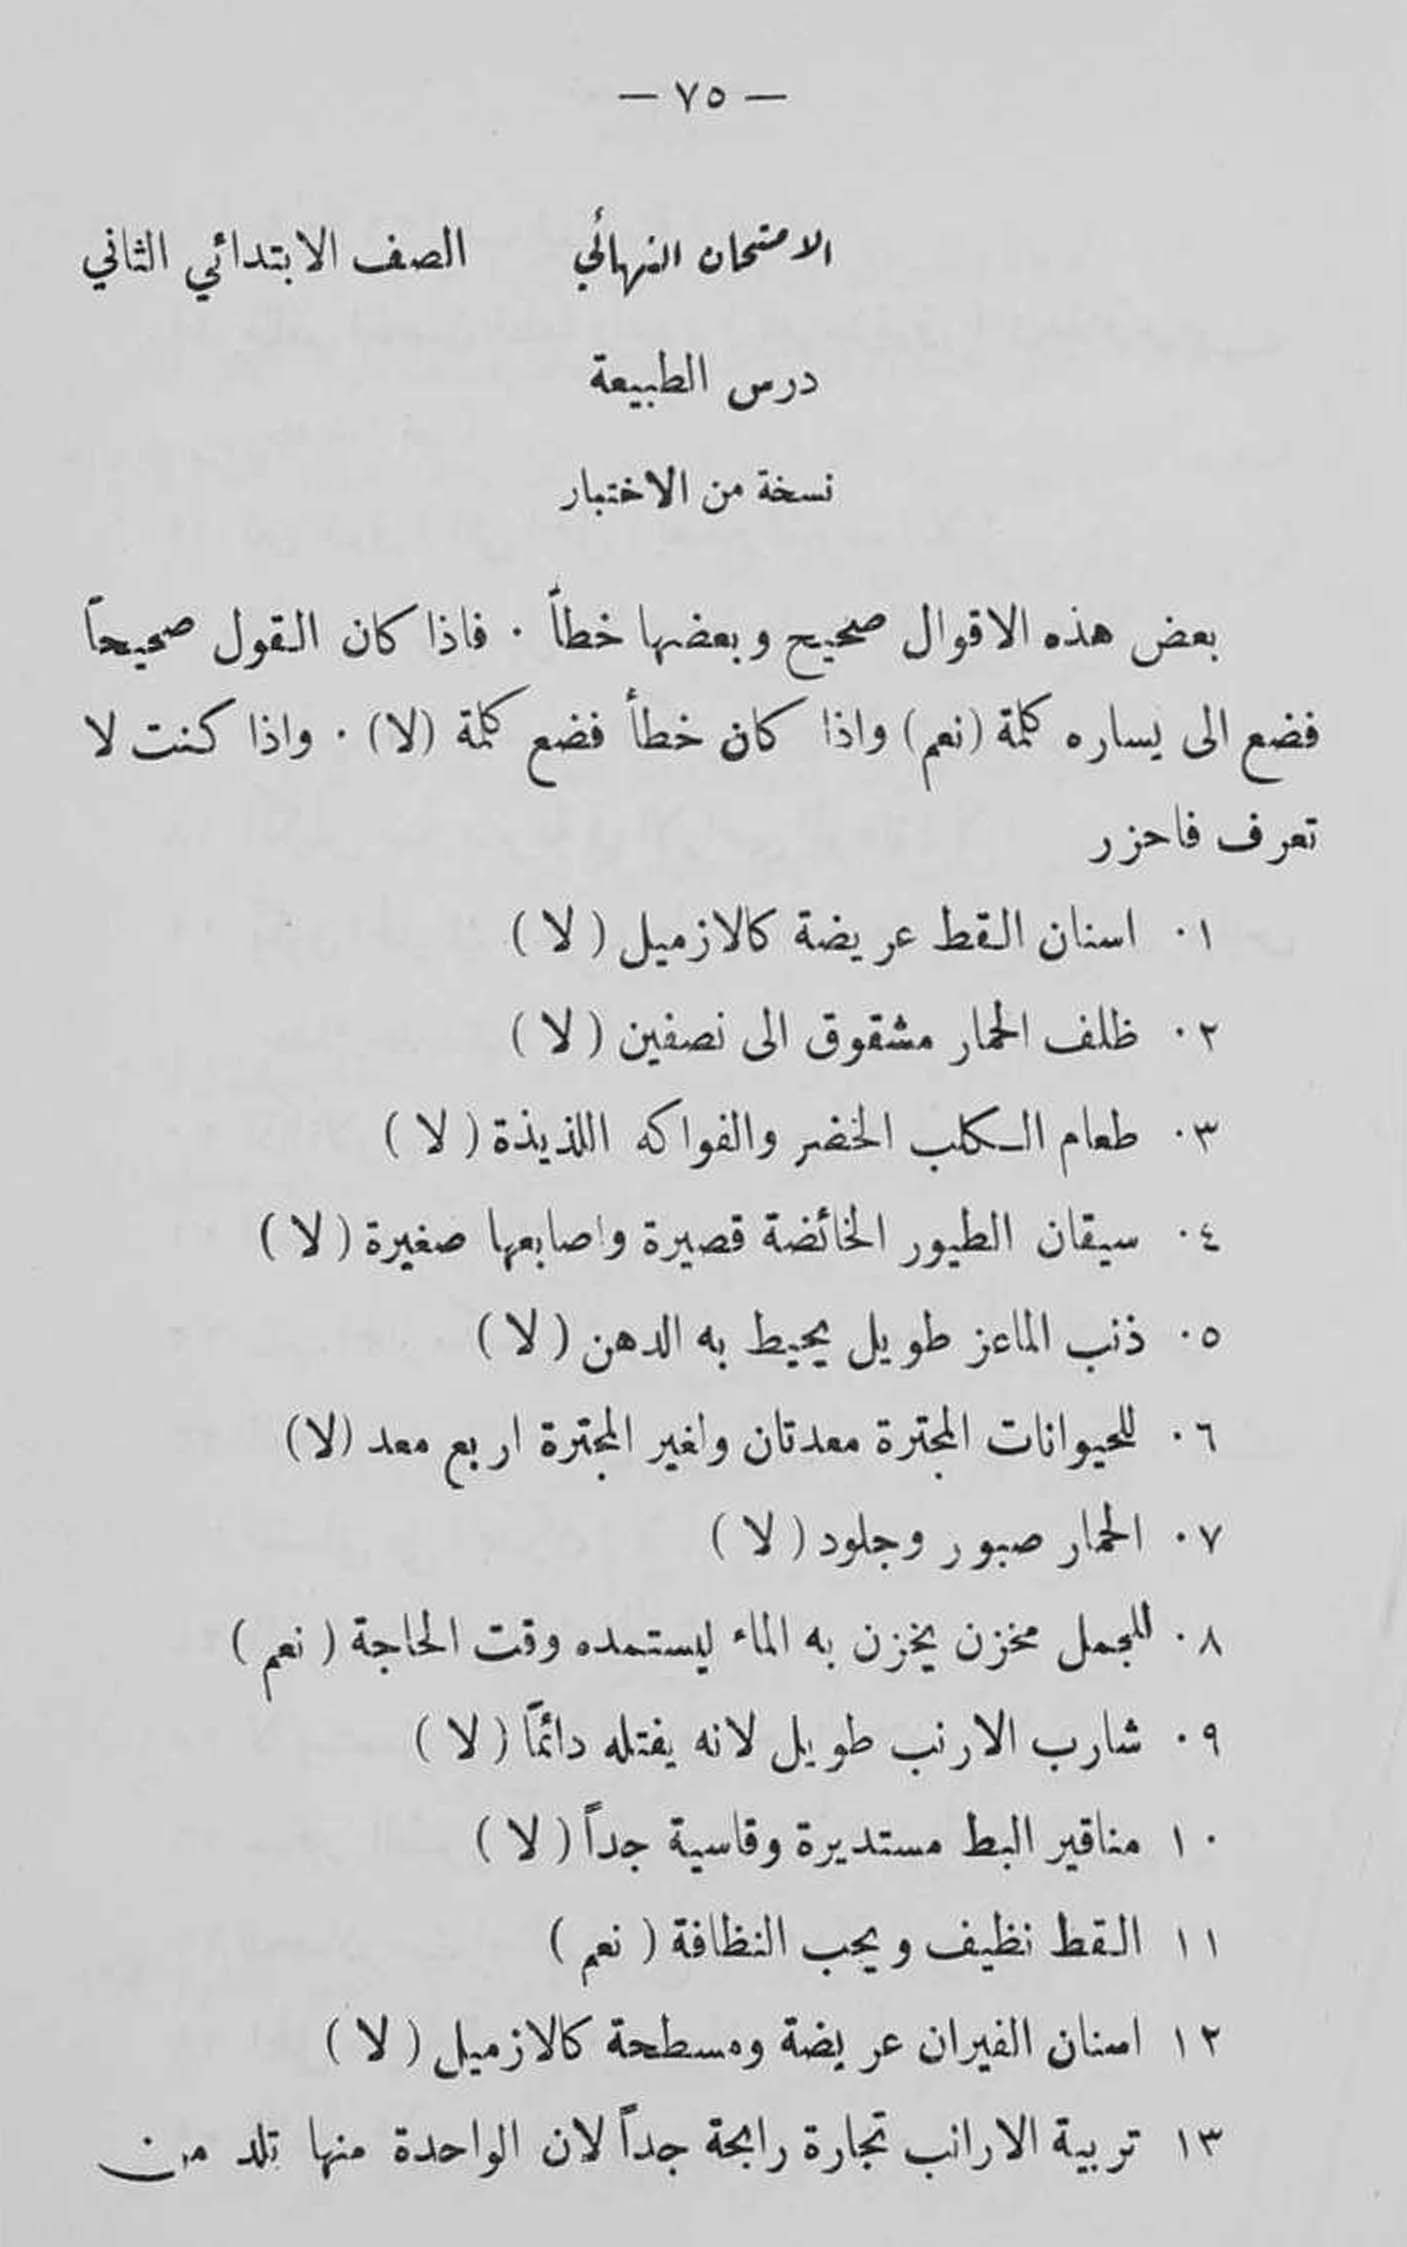 — ٧٥ —
الامتحان النهائي الصف الابتدائي الثاني
درس الطبيعة
نسخة من الاختبار
بعض هذه الاقوال صحيح وبعضها خطأ . فاذا كان القول صحيحاً
فضع الى يساره كلمة (نعم) واذا كان خطأ فضع كلمة (لا) . واذا كنت لا
تعرف فاحزر
٠١ اسنان القط عريضة كالازميل ( لا )
٠٢ ظلف الحمار مشقوق الى نصفين ( لا )
٠٣ طعام الكلب الخضر والفواكه اللذيذة ( لا )
٠٤ سيقان الطيور الخائضة قصيرة واصابعها صغيرة ( لا )
٠٥ ذنب الماعز طويل يحيط به الدهن ( لا )
٠٦ للحيوانات المجترة معدتان ولغير المجترة اربع معد (لا)
٠٧ الحمار صبور وجلود ( لا )
٠٨ للجمل مخزن يخزن به الماء ليستمده وقت الحاجة ( نعم )
٠٩ شارب الارنب طويل لانه يفتله دائماً ( لا )
١٠ مناقير البط مستديرة وقاسية جداً ( لا )
١١ القط نظيف ويحب النظافة ( نعم )
١٢ اسنان الفيران عريضة ومسطحة كالازميل ( لا )
١٣ تربية الارانب تجارة رابحة جداً لان الواحدة منها تلد من